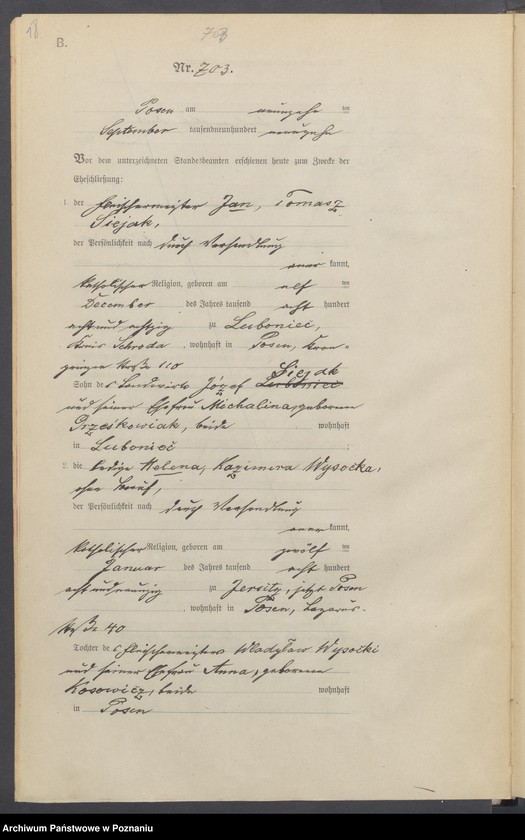 18
703
B.
Nr. 703.
Posen am neunzehn ten
September tausendneunhundert neunzehn
Vor dem unterzeichneten Standesbeamten erschienen heute zum Zwecke der
Eheschließung:
1. der Fleischermeister Jan, Tomasz
Siejak,
der Persönlichkeit nach durch Verhandlung
aner kannt,
katholischer Religion, geboren am elf ten
December des Jahres tausend acht hundert
acht und achtzig zu Lubonieč,
Kreis Schroda, wohnhaft in Posen, Kron-
prinzen Straße 110
Siejak
Sohn des Landwirts Józef Lubonieč
und seiner Ehefrau Michalina, geborenen
beide wohnhaft
in Lubonieč ;
2. die ledige Helena, Kazimira Wysocka,
ohne Beruf,
der Persönlichkeit nach durch Verhandlung
aner kannt,
katholischer Religion, geboren am zwölf ten
Januar des Jahres tausend acht hundert
acht und neunzig zu Jersitz, jetzt Posen
, wohnhaft in Posen, Lazarus-
straße 40
Tochter des Fleischermeisters Władysław Wysocki
und seiner Ehefrau Anna, geborenen
Kosowicz, beide wohnhaft
in Posen
Archiwum Państwowe w Poznaniu